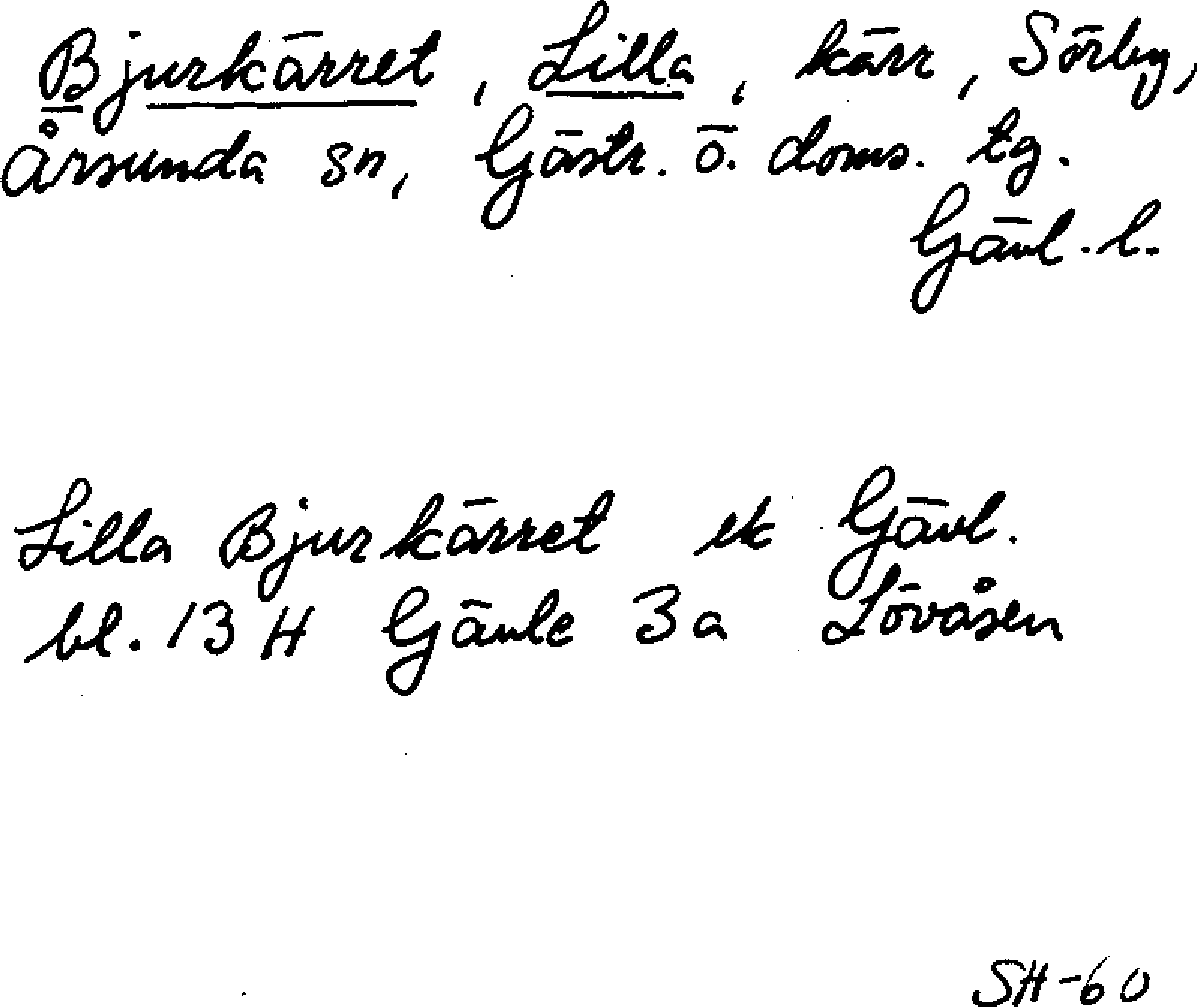 Bjurkärret, Lilla, kärr, Sörby,
Årsunda sn, Gästr. ö. doms. tg.
Gävl. l.
Lilla Bjurkärret ek Gävl.
bl. 13 H Gävle 3a Lövåsen
SH-60